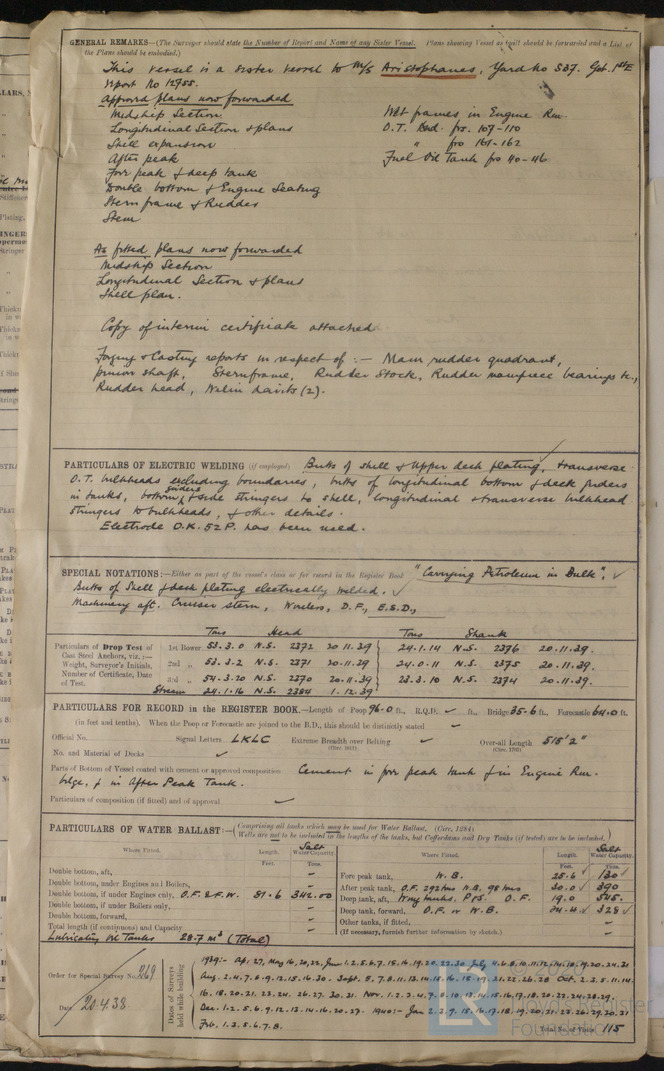 GENERAL REMARKS—(The Surveyor should state the Number of Report and Name of any Sister Vessel. Plans showing Vessel as built should be forwarded and a List of
the Plans should be embodied.)
This vessel is a sister vessel to M/S Aristophanes, Yard No 537. Got. 1st E
report No 12755.
Approved plans now forwarded
Midship Section
Longitudinal Section & plans
Shell expansion
After peak
For peak & deep tank
Double bottom & Engine Seating
Stern frame & Rudder
Stem
Web frames in Engine Rm.
O.T. Bhd. frs. 107-110
" frs 161-162
Fuel Oil Tank frs 40-46
As fitted plans now forwarded
Midship Section
Longitudinal Section & plans
Shell plan.
Copy of interim certificate attached
Forging & Casting reports in respect of :— Main rudder quadrant,
pinion shaft, Sternframe, Rudder Stock, Rudder mainpiece bearings &c.,
Rudder head, Welin davits (2).
PARTICULARS OF ELECTRIC WELDING (if employed) Butts of shell & Upper deck plating, transverse
O.T. bulkheads excluding boundaries, butts of longitudinal bottom & deck girders
in tanks, bottom girders & side stringers to shell, longitudinal & transverse bulkhead
stringers to bulkheads, & other details.
Electrode O.K. 52 P. has been used.
SPECIAL NOTATIONS:—Either as part of the vessel's class or for record in the Register Book "Carrying Petroleum in Bulk".
Butts of Shell & deck plating electrically welded.
Machinery aft. Cruiser stern, Wireless, D.F., E.S.D.,
Tons Head Tons Shank
Particulars of Drop Test of
Cast Steel Anchors, viz.:—
Weight, Surveyor's Initials,
Number of Certificate, Date
of Test.
1st Bower 53.3.0 N.S. 2372 20.11.39 24.1.14 N.S. 2376 20.11.39.
2nd " 53.3.2 N.S. 2371 20.11.39 24.0.11 N.S. 2375 20.11.39.
3rd " 54.3.20 N.S. 2370 20.11.39 23.3.10 N.S. 2374 20.11.39.
Stream 24.1.16 N.S. 2384 1.12.39
PARTICULARS FOR RECORD in the REGISTER BOOK.—Length of Poop 96.0 ft., R.Q.D. ft., Bridge 35.6 ft., Forecastle 64.0 ft.
(in feet and tenths). When the Poop or Forecastle are joined to the B.D., this should be distinctly stated
Official No. Signal Letters LKLC Extreme Breadth over Belting Over-all Length 515'2"
No. and Material of Decks
Parts of Bottom of Vessel coated with cement or approved composition Cement in for peak tank & in Engine Rm.
bilge, & in After Peak Tank.
Particulars of composition (if fitted) and of approval
PARTICULARS OF WATER BALLAST:—(Comprising all tanks which may be used for Water Ballast, (Circ. 1284)
Wells are not to be included in the lengths of the tanks, but Cofferdams and Dry Tanks (if tested) are to be included.)
Where Fitted. Length. Salt Water Capacity. Where Fitted. Length. Salt Water Capacity.
Feet. Tons. Feet. Tons.
Double bottom, aft,
Double bottom, under Engines and Boilers,
Double bottom, if under Engines only, O.F. & F.W. 81.6 342.00
Double bottom, if under Boilers only,
Double bottom, forward,
Total length (if continuous) and Capacity
Lubricating Oil Tanks 28.7 m³ (Total)
Fore peak tank, W.B. 25.6 130
After peak tank, O.F. 292 tons W.B. 98 tons 30.0 390
Deep tank, aft, P&S. O.F. 19.0 545.
Deep tank, forward, O.F. or W.B. 328
Other tanks, if fitted,
(If necessary, furnish further information by sketch.)
Order for Special Survey No. 269
Date 20.4.38
Dates of Surveys
held while building
1939:- Ap. 27, May 16, 20, 22, June 1. 2. 5. 6. 7. 15. 16. 19. 20. 22. 30 July
Aug. 2. 4. 7. 8. 9. 12. 15. 16. 30. Sept.
16. 18. 20. 21. 23. 24. 26. 27. 30. 31. Nov.
Dec. 1. 2. 5. 6. 9. 12. 13. 14. 16. 20. 27. 1940:- Jan
Feb. 1. 2. 5. 6. 7. 8.
Total No. of Visits 115
LR
© 2020
Lloyd's Register
Foundation